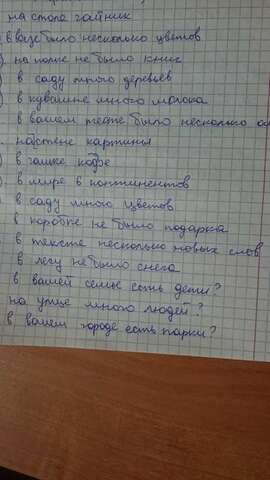 на столе чайник
в вазе было несколько цветов
на полке не было книг
в саду много деревьев
в кувшине много молока
в вашем тексте было несколько
на стене картины
в чашке кофе
в мире 6 континентов
в саду много цветов
в коробке не было подарка
в тексте несколько новых слов
в лесу не было снега
в вашей семье есть дети?
на улице много людей?
в вашем городе есть парки?